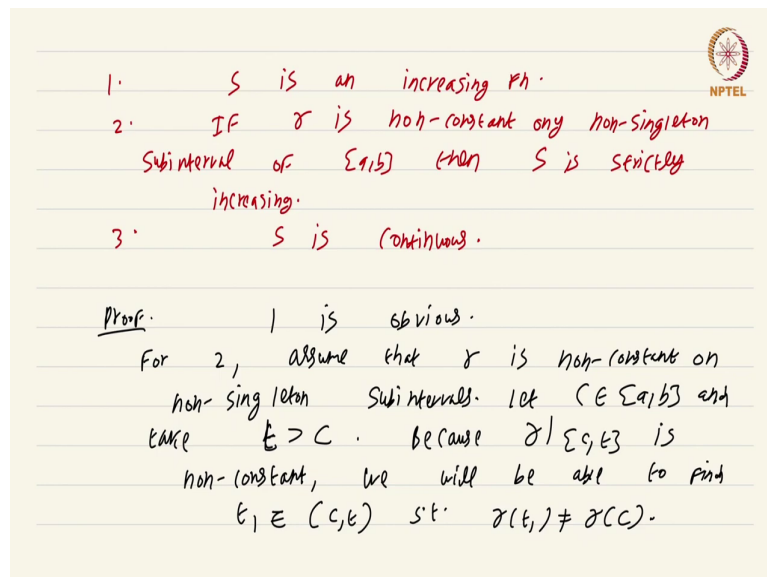 NPTEL
1. S is an increasing Fn.
2. IF γ is non-constant ony non-singleton
Subinterval of [a,b] then S is strictly
increasing.
3. S is continuous.
Proof. 1 is obvious.
For 2, assume that γ is non-constant on
non-singleton Subintervals. let C ∈ [a,b] and
take t > C. Because γ|[c,t] is
non-constant, we will be able to find
t₁ ∈ (c,t) s.t. γ(t₁) ≠ γ(c).